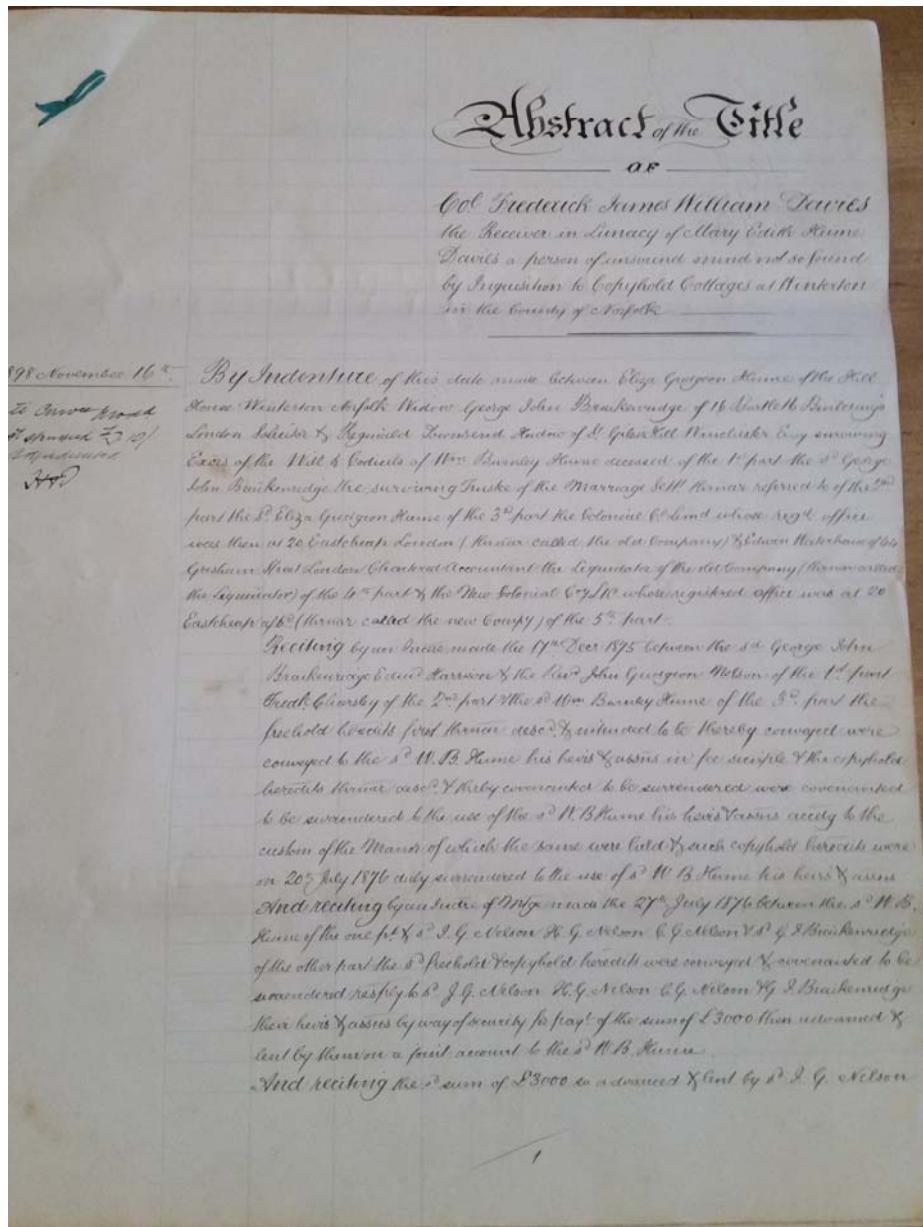 Abstract of the Title
OF
Col Frederick James William Davies
the Receiver in Lunacy of Mary Edith Hume
Davies a person of unsound mind not so found
by Inquisition to Copyhold Cottages at Winterton
in the County of Norfolk
898 November 16th
By Indenture of this date made between Eliza Gudgeon Hume of the Hill
House Winterton Norfolk Widow George John Braikenridge of 16 Bartletts Buildings
London Solicitor & Reginald Townsend of St Giles Hill Winchester Esq surviving
Exors of the Will & Codicils of Wm Burnley Hume deceased of the 1st part the sd George
John Braikenridge the surviving Trustee of the Marriage Settt thinar referred to of the 2nd
part the sd Eliza Gudgeon Hume of the 3d part the Colonial Co Limd whose regd office
was then at 20 Eastcheap London (thinar called the old Company) & Edwin Waterhouse of 44
Gresham Street London Chartered Accountant the Liquidator of the old Company (thinar called
the Liquidator) of the 4th part & the New Colonial Coy Ltd whose registered office was at 20
Eastcheap afsd (thinar called the new Compy) of the 5th part
Reciting by an Indre made the 17th Decr 1875 between the sd George John
Braikenridge Edwd Harrison & the Revd John Gudgeon Nelson of the 1st part
Fredk Chearsley of the 2nd part & the sd Wm Burnley Hume of the 3d part the
freehold heredits first thinar descd & intended to be thereby conveyed were
conveyed to the sd W. B. Hume his heirs & assns in fee simple & the copyhold
heredits thinar descd & thrby covenanted to be surrendered were covenanted
to be surrendered to the use of the sd W. B. Hume his heirs & assns accdg to the
custom of the Manor of which the same were held & such copyhold heredits were
on 20th July 1876 duly surrendered to the use of sd W B Hume his heirs & assns
And reciting by an Indre of Mtge made the 27th July 1876 between the sd W. B.
Hume of the one pt & sd J. G. Nelson H. G. Nelson C G Nelson & sd G J Braikenridge
of the other part the sd freehold & copyhold heredits were conveyed & covenanted to be
surrendered resply to sd J. G. Nelson H. G. Nelson C. G. Nelson & G J Braikenridge
their heirs & assns by way of security for payt of the sum of £3000 then advanced &
lent by them on a joint account to the sd W. B. Hume
And reciting the sd sum of £3000 so advanced & lent by sd J. G. Nelson
1